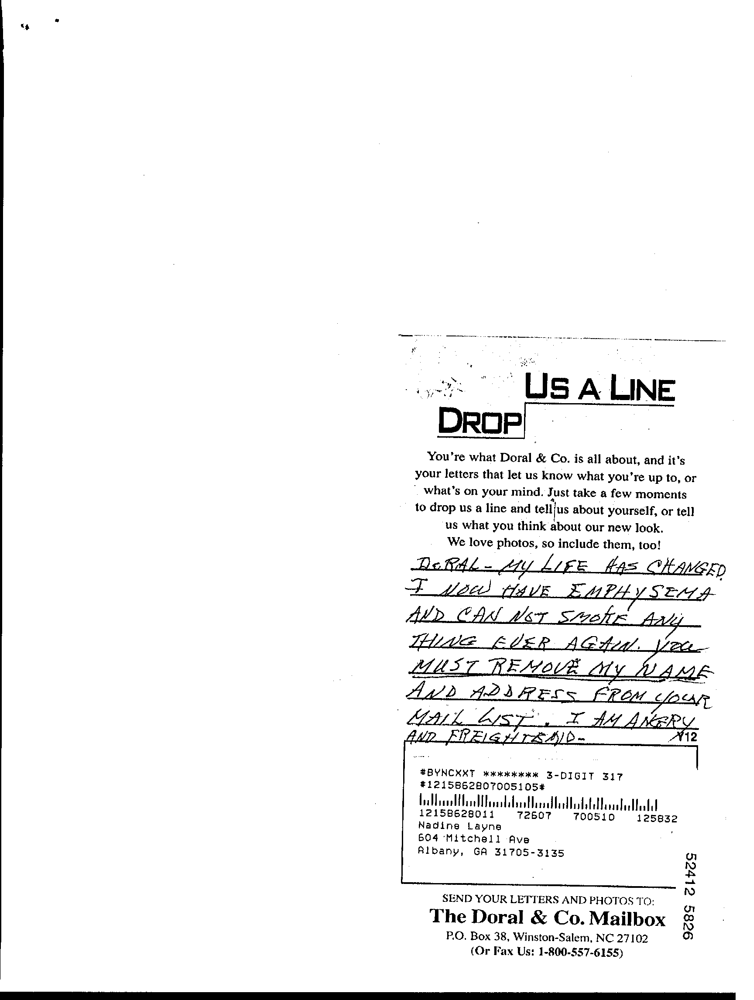 US A LINE
DROP
You're what Doral & Co. is all about, and it's
your letters that let us know what you're up to, or
what's on your mind. Just take a few moments
to drop us a line and tell us about yourself, or tell
us what you think about our new look.
We love photos, so include them, too!
DORAL - MY LIFE HAS CHANGED
I NOW HAVE EMPHYSEMA
AND CAN NOT SMOKE ANY
THING EVER AGAIN. YOU
MUST REMOVE MY NAME
AND ADDRESS FROM YOUR
MAIL LIST. I AM ANGRY
AND FREIGHTENID-
#BYNCXXT ******** 3-DIGIT 317
#1215862807005105#
12158628011 72607 700510 125832
Nadine Layne
604 Mitchell Ave
Albany, GA 31705-3135
SEND YOUR LETTERS AND PHOTOS TO:
The Doral & Co. Mailbox
P.O. Box 38, Winston-Salem, NC 27102
(Or Fax Us: 1-800-557-6155)
52412 5826